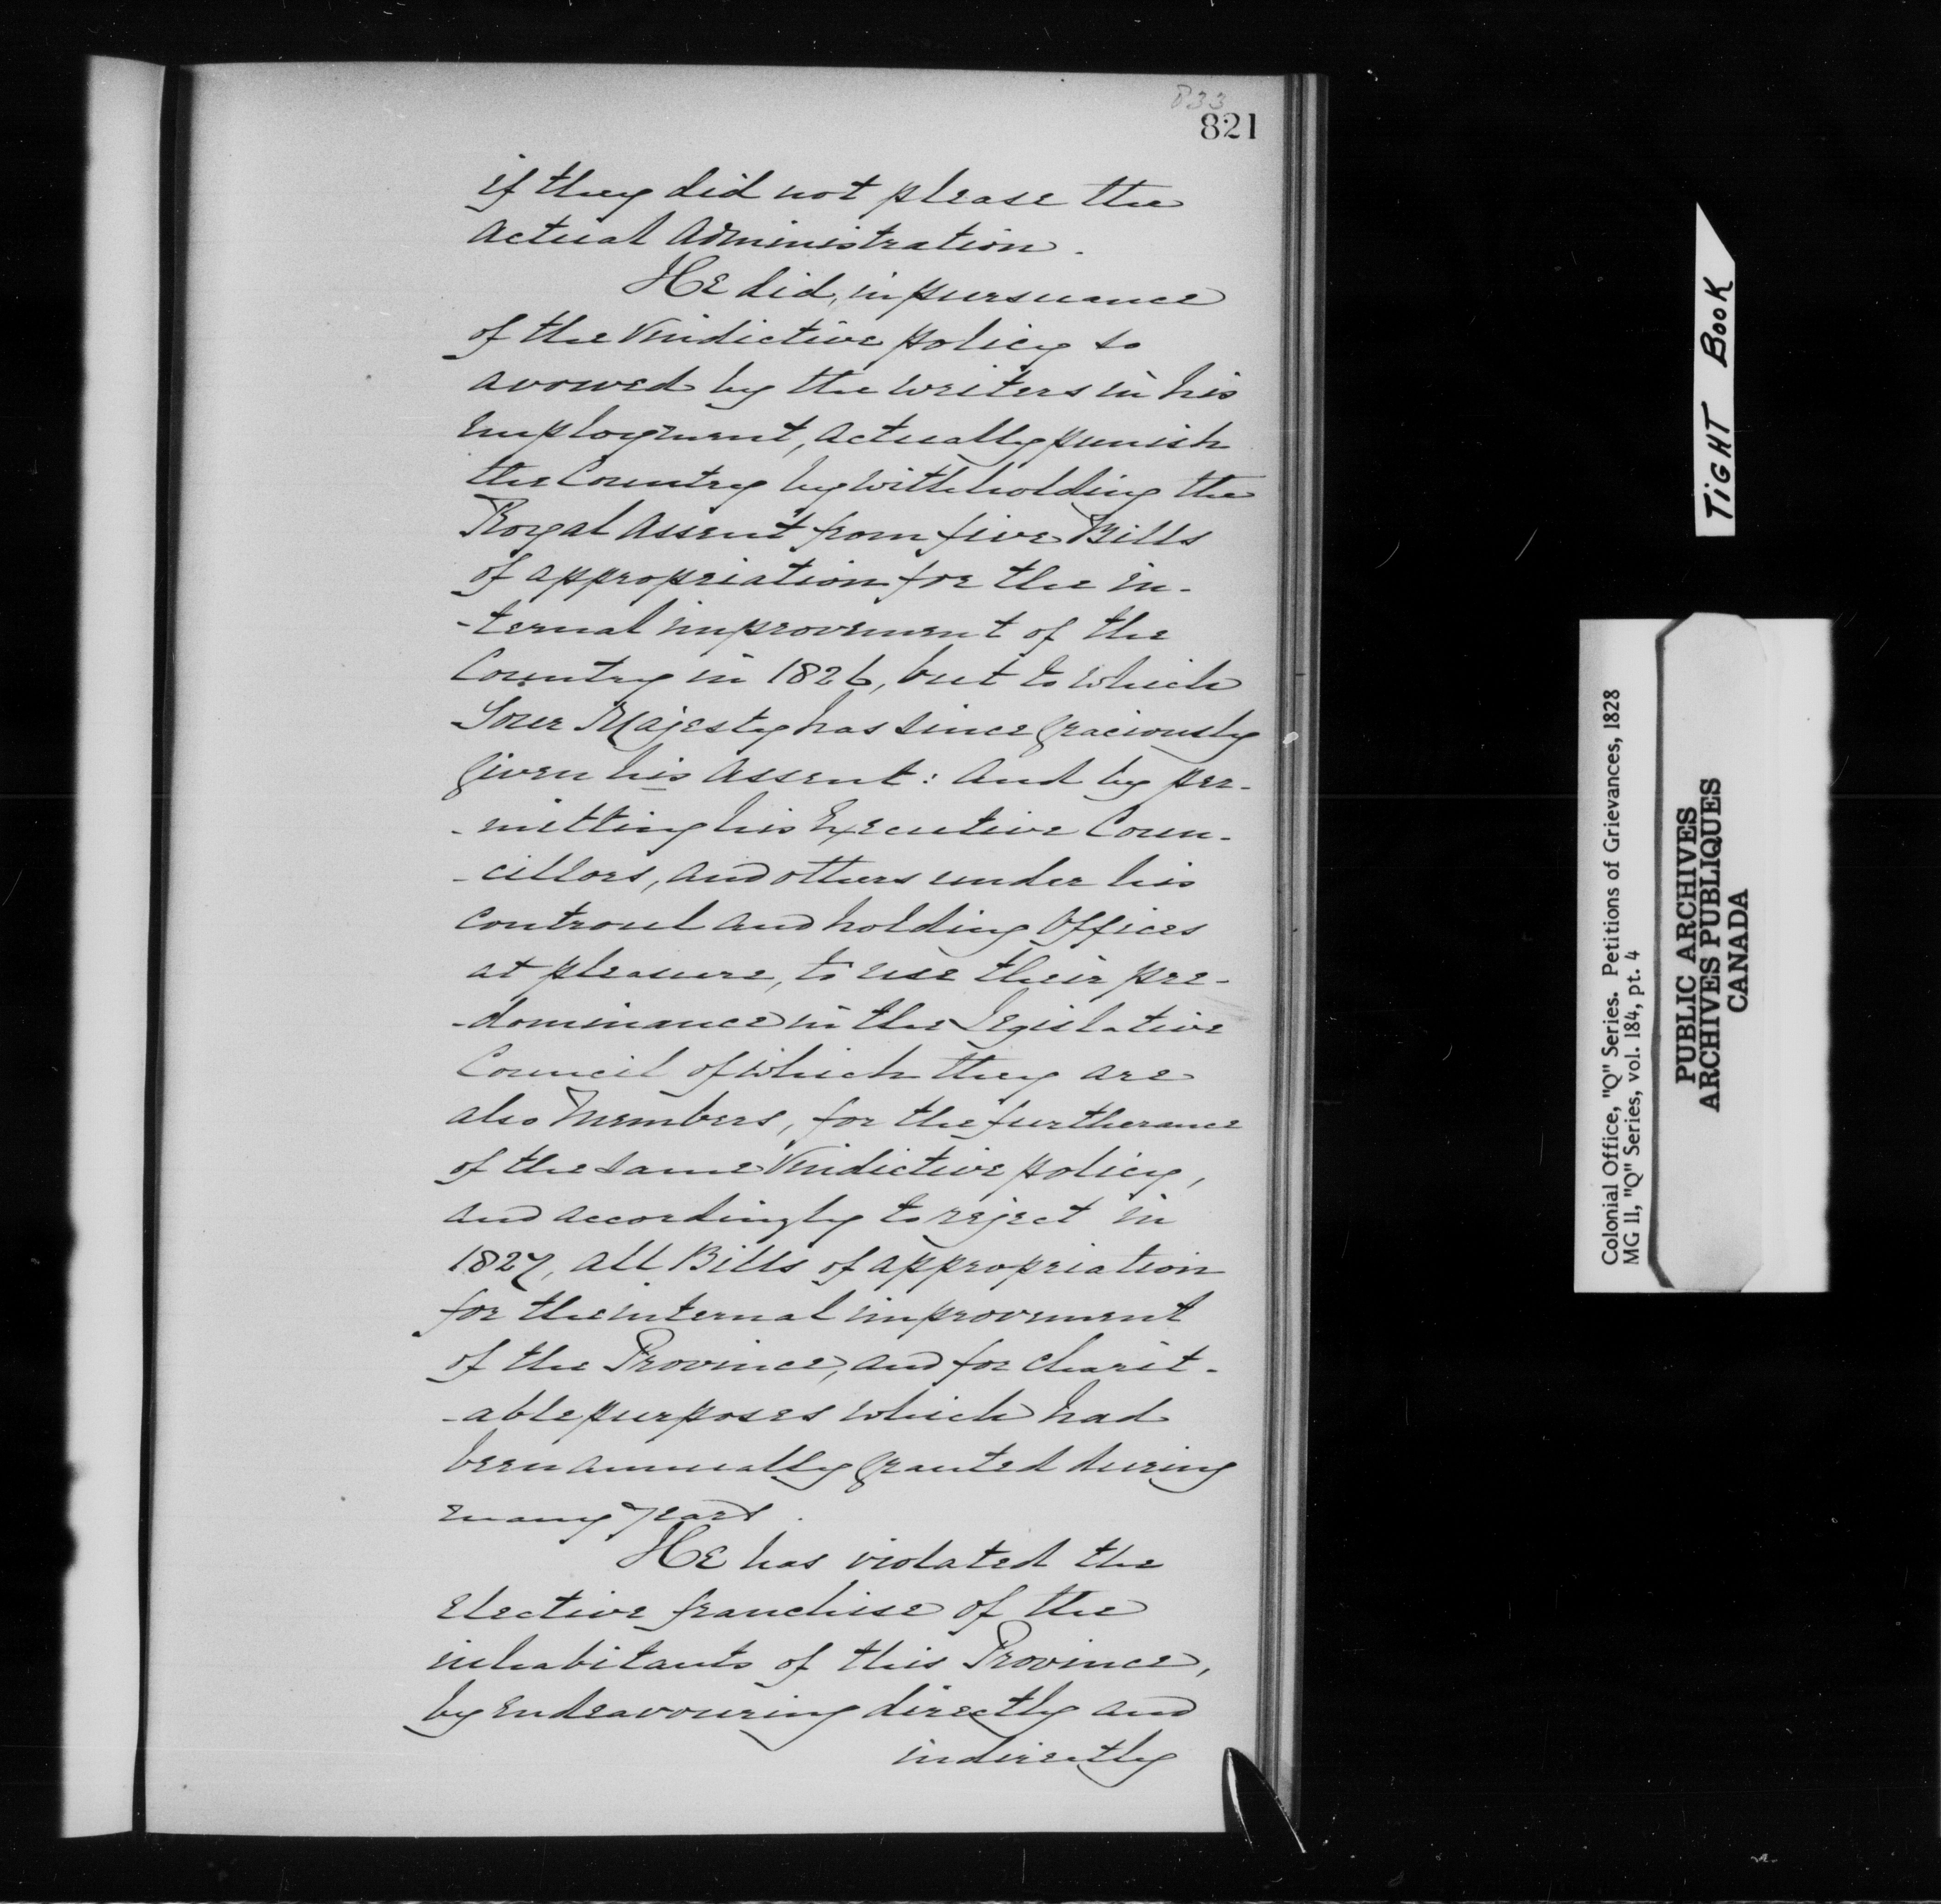 833
821
if they did not please the
actual Administration.
He did, in pursuance
of the Vindictive policy so
avowed by the writers in his
employment, actually punish
the Country by withholding the
Royal Assent from five Bills
of appropriation for the in-
-ternal improvement of the
Country in 1826, but to which
Your Majesty has since graciously
given his assent: and by per-
-mitting his Executive Coun-
-cillors, and others under his
controul and holding Offices
at pleasure, to use their pre-
-dominance in the Legislative
Council of which they are
also Members, for the furtherance
of the same Vindictive policy,
and accordingly to reject in
1827, all Bills of appropriation
for the internal improvement
of the Province, and for charit-
-able purposes which had
been annually granted during
many years.
He has violated the
elective franchise of the
inhabitants of this Province,
by endeavouring directly and
indirectly
TIGHT BOOK
Colonial Office, "Q" Series. Petitions of Grievances, 1828
MG 11, "Q" Series, vol. 184, pt. 4
PUBLIC ARCHIVES
ARCHIVES PUBLIQUES
CANADA